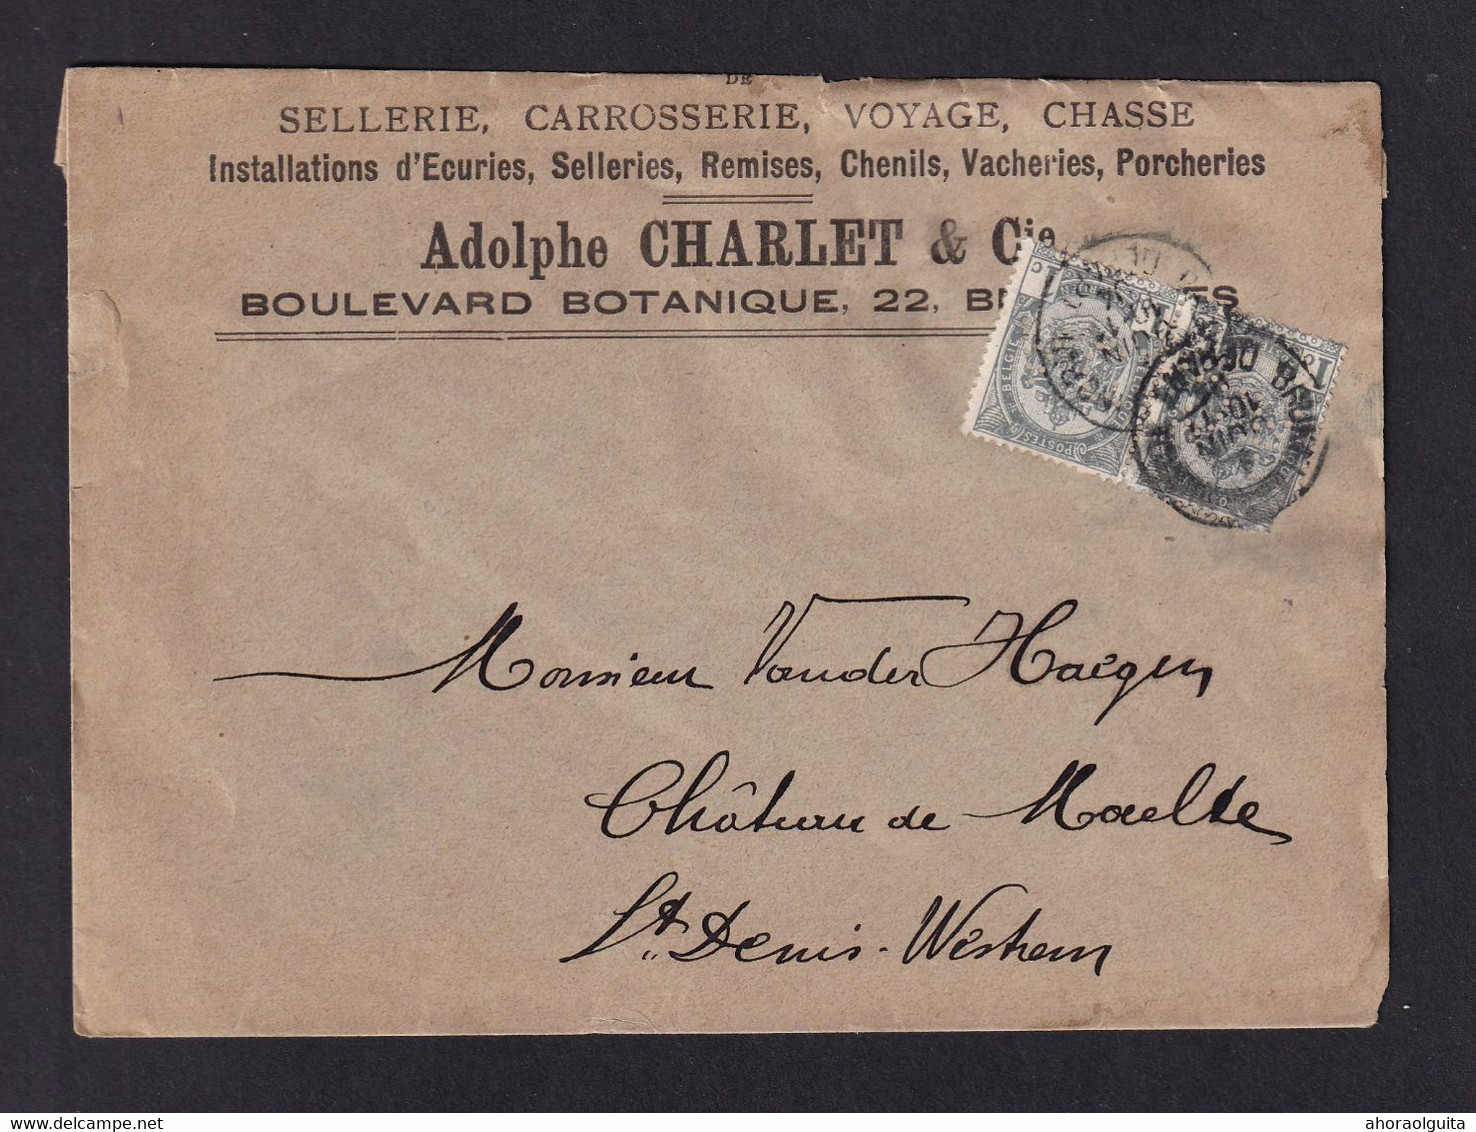 DE
SELLERIE, CARROSSERIE, VOYAGE, CHASSE
Installations d'Ecuries, Selleries, Remises, Chenils, Vacheries, Porcheries
Adolphe CHARLET & Cie
BOULEVARD BOTANIQUE, 22,
BELGIE
POSTES
Monsieur Vander Haegen
Château de Maelte
St. Denis-Westrem
ahoraolguita